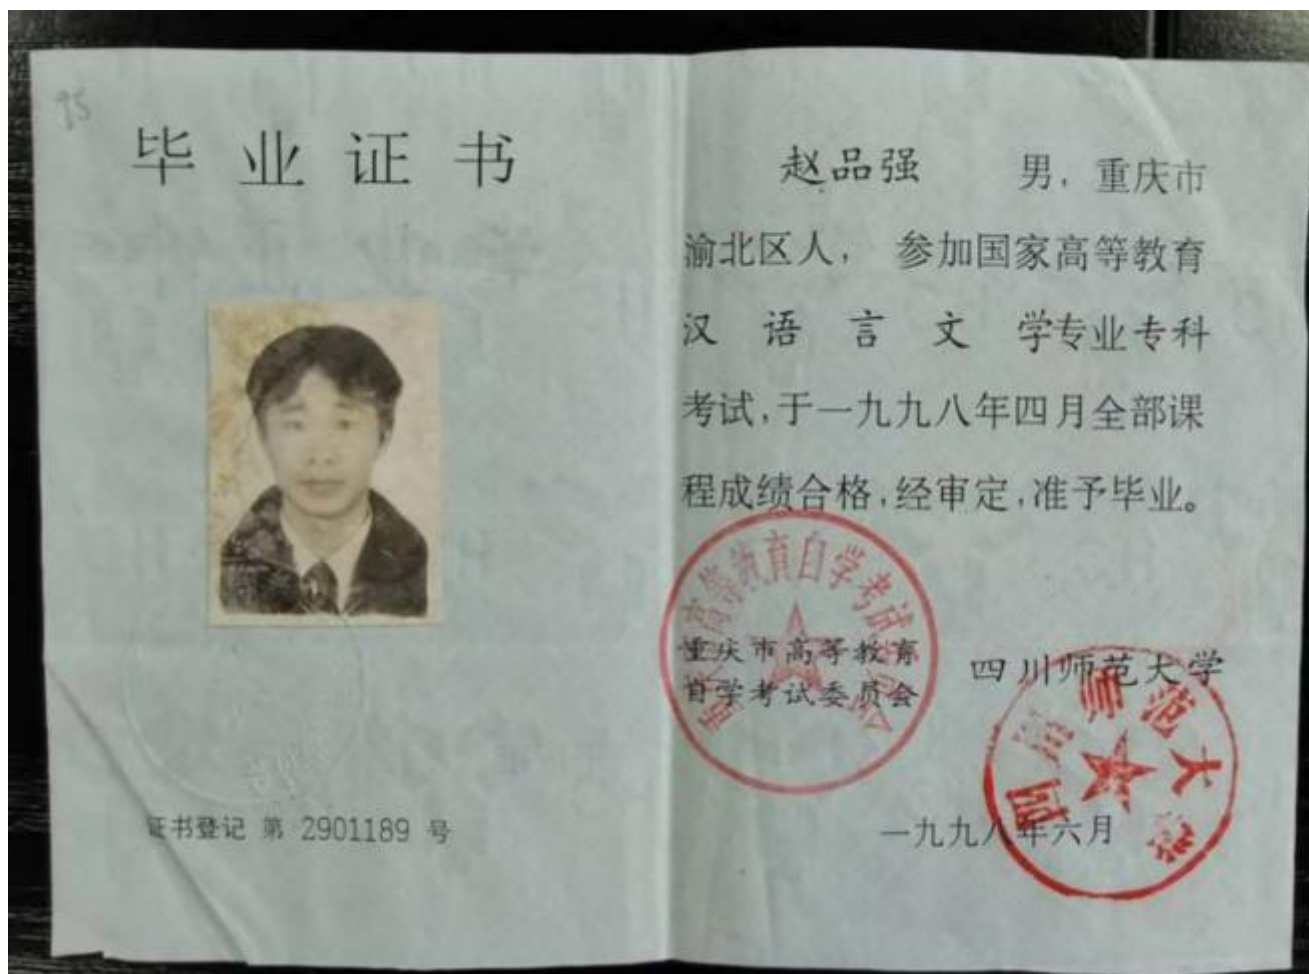 95
毕业证书
证书登记 第 2901189 号
赵品强 男，重庆市
渝北区人， 参加国家高等教育
汉语言文学专业专科
考试，于一九九八年四月全部课
程成绩合格，经审定，准予毕业。
高等教育自学考试委员会
重庆市高等教育
自学考试委员会
四川师范大学
四川师范大学
一九九八年六月